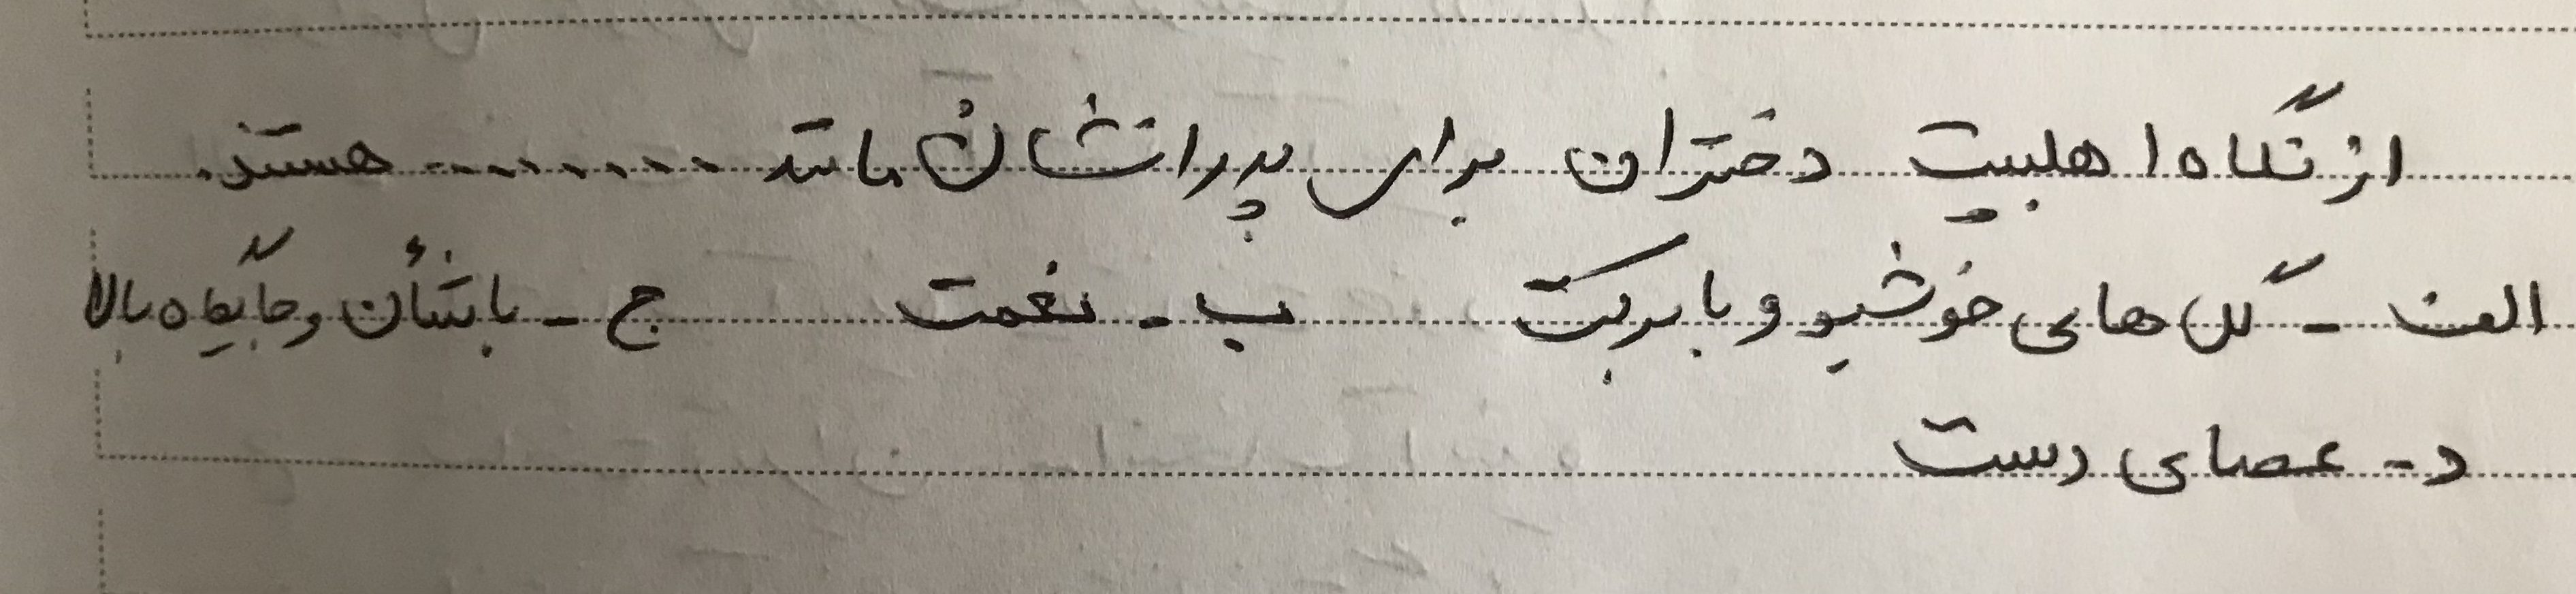 از نگاه اهلبیت دختران برای پدرانشان مانند ........ هستند.
الف - گل های خوشبو و با برکت ب - نعمت ج - با شأن و جایگاه بالا
د - عصای دست